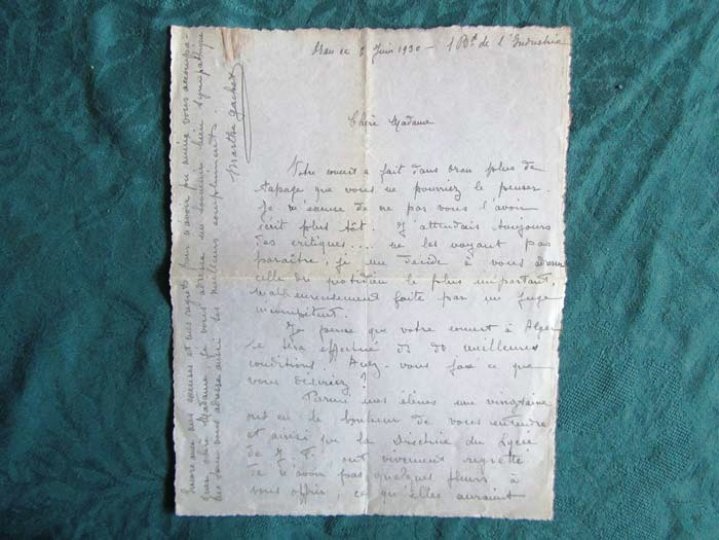 Oran le 8 Juin 1930 - 1 Bd de l'Industrie
Chère Madame
Votre concert a fait dans Oran plus de
tapage que vous ne pourriez le penser.
Je m'excuse de ne pas vous l'avoir
écrit plus tôt. J'attendais toujours
des critiques.... ne les voyant pas
paraître, je me décide à vous adresser
celle du quotidien le plus important,
malheureusement faite par un juge
incompétent.
Je pense que votre concert à Alger
se sera effectué de meilleures
conditions. Avez-vous fait ce que
vous désiriez?
Parmi mes élèves une vingtaine
ont eu le bonheur de vous entendre
et ainsi que la Directrice du Lycée
de J. F. ont vivement regretté
de n'avoir pas quelques fleurs à
vous offrir, ce qu'elles auraient
Encore mes excuses et mes regrets pour n'avoir pu mieux vous
chère Madame. Je vous adresse un souvenir bien sympathique
vous adresse aussi ses meilleurs compliments.
Marthe Gachet